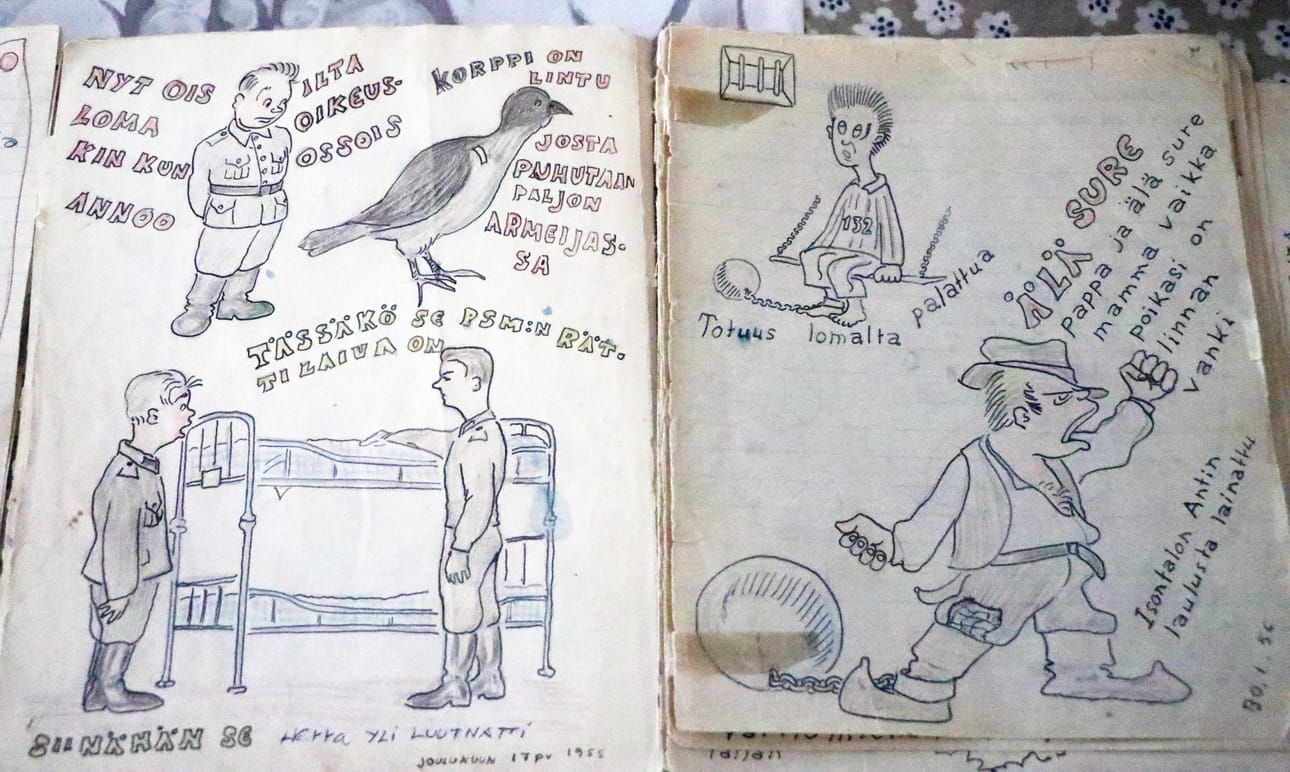 NYT OIS
LOMA
KIN KUN
ANNOO
ILTA
OIKEUS-
OSSOIS
KORPPI ON
LINTU
JOSTA
PUHUTAAN
PALJON
ARMEIJAS-
SA
TÄSSÄKÖ SE PSM:N RÄT-
TILAIVA ON
SIINÄHÄN SE Herra YLI LUUTNATTI
JOULUKUUN 17 PV 1955
132
Totuus lomalta palattua
ÄLÄ SURE
Pappa ja älä sure
mamma vaikka
poikasi on
linnan
vanki
Isontalon Antin
laulusta lainattu
30.1.56